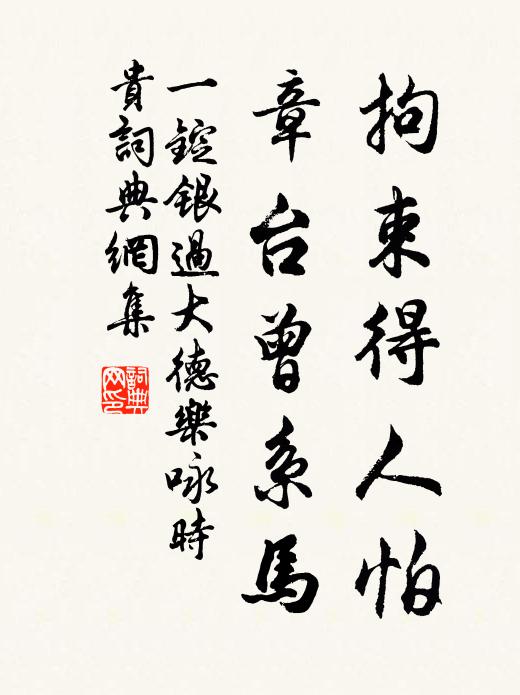 拘束得人怕
章台曾系馬
一錠銀過大德樂咏時
貴詞典網集
詞典网印